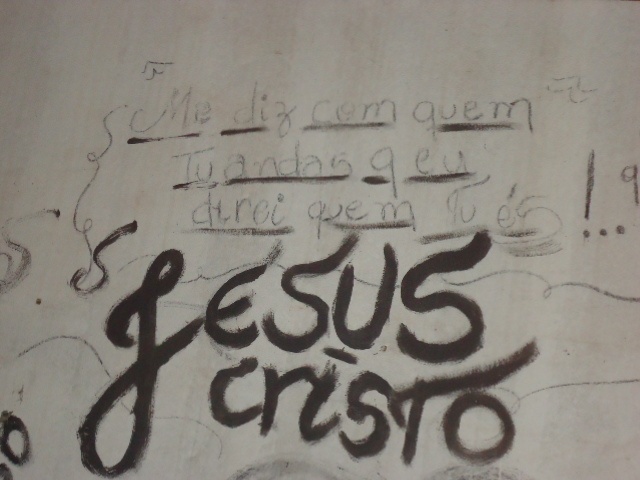 Me diz com quem
Tu andas q eu
direi quem Tu és!...
JESUS
cristo